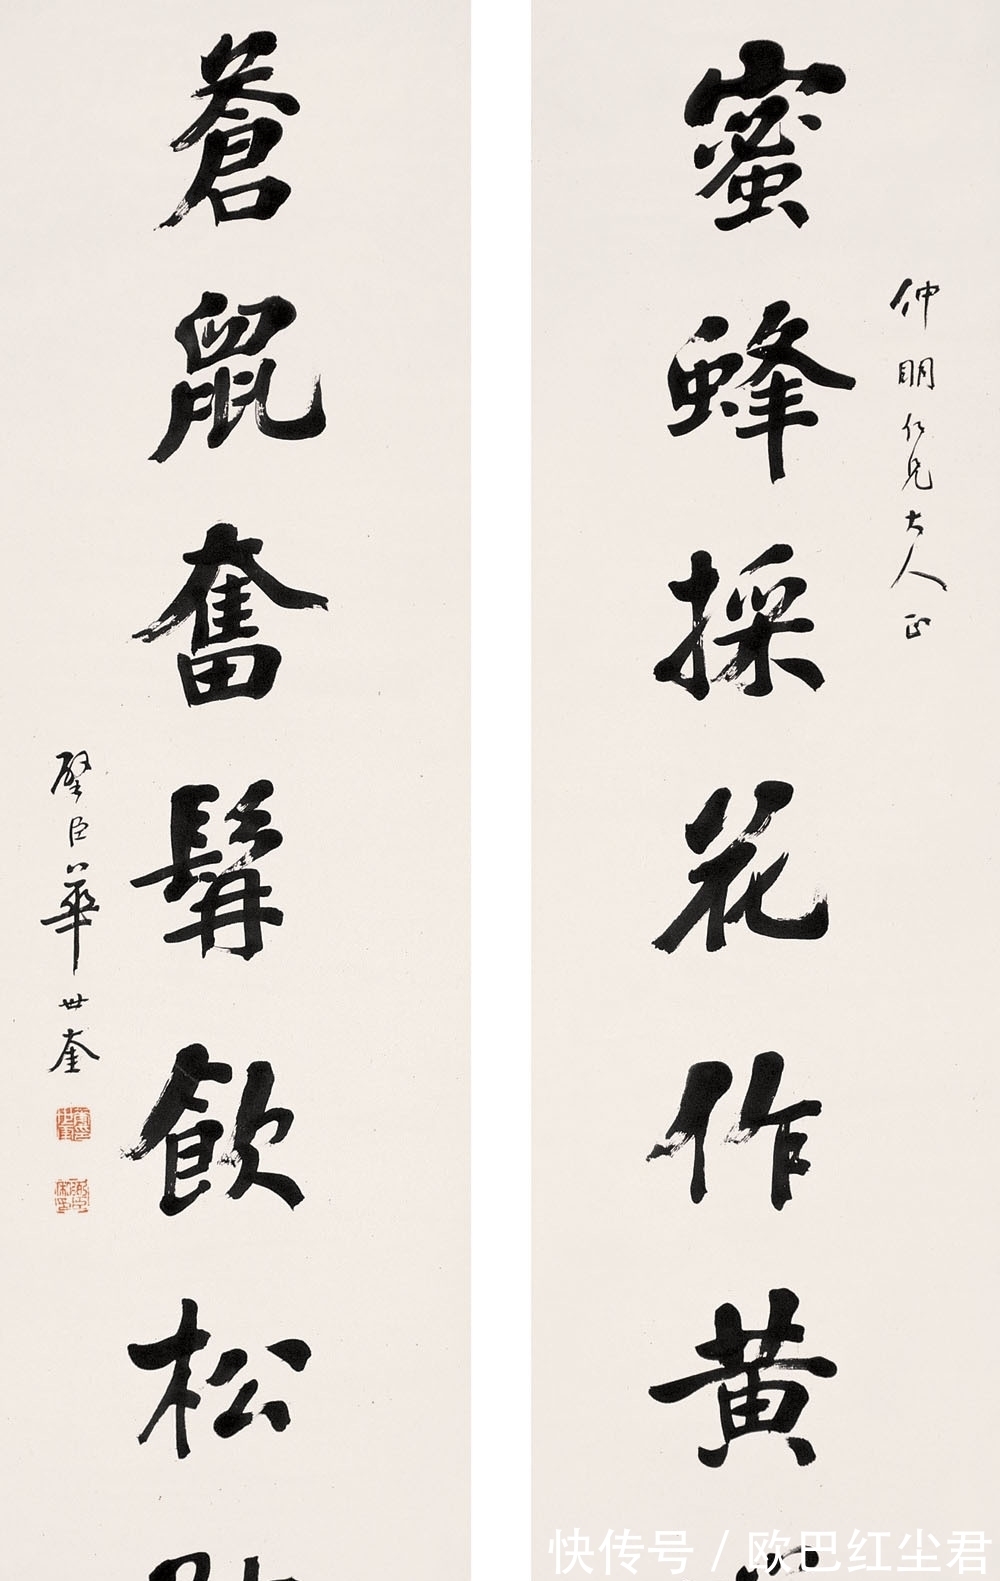 仲明仁兄大人正
蜜蜂採花作黄
蒼鼠奮髯飲松
璧臣華世奎
快传号 / 欧巴红尘君